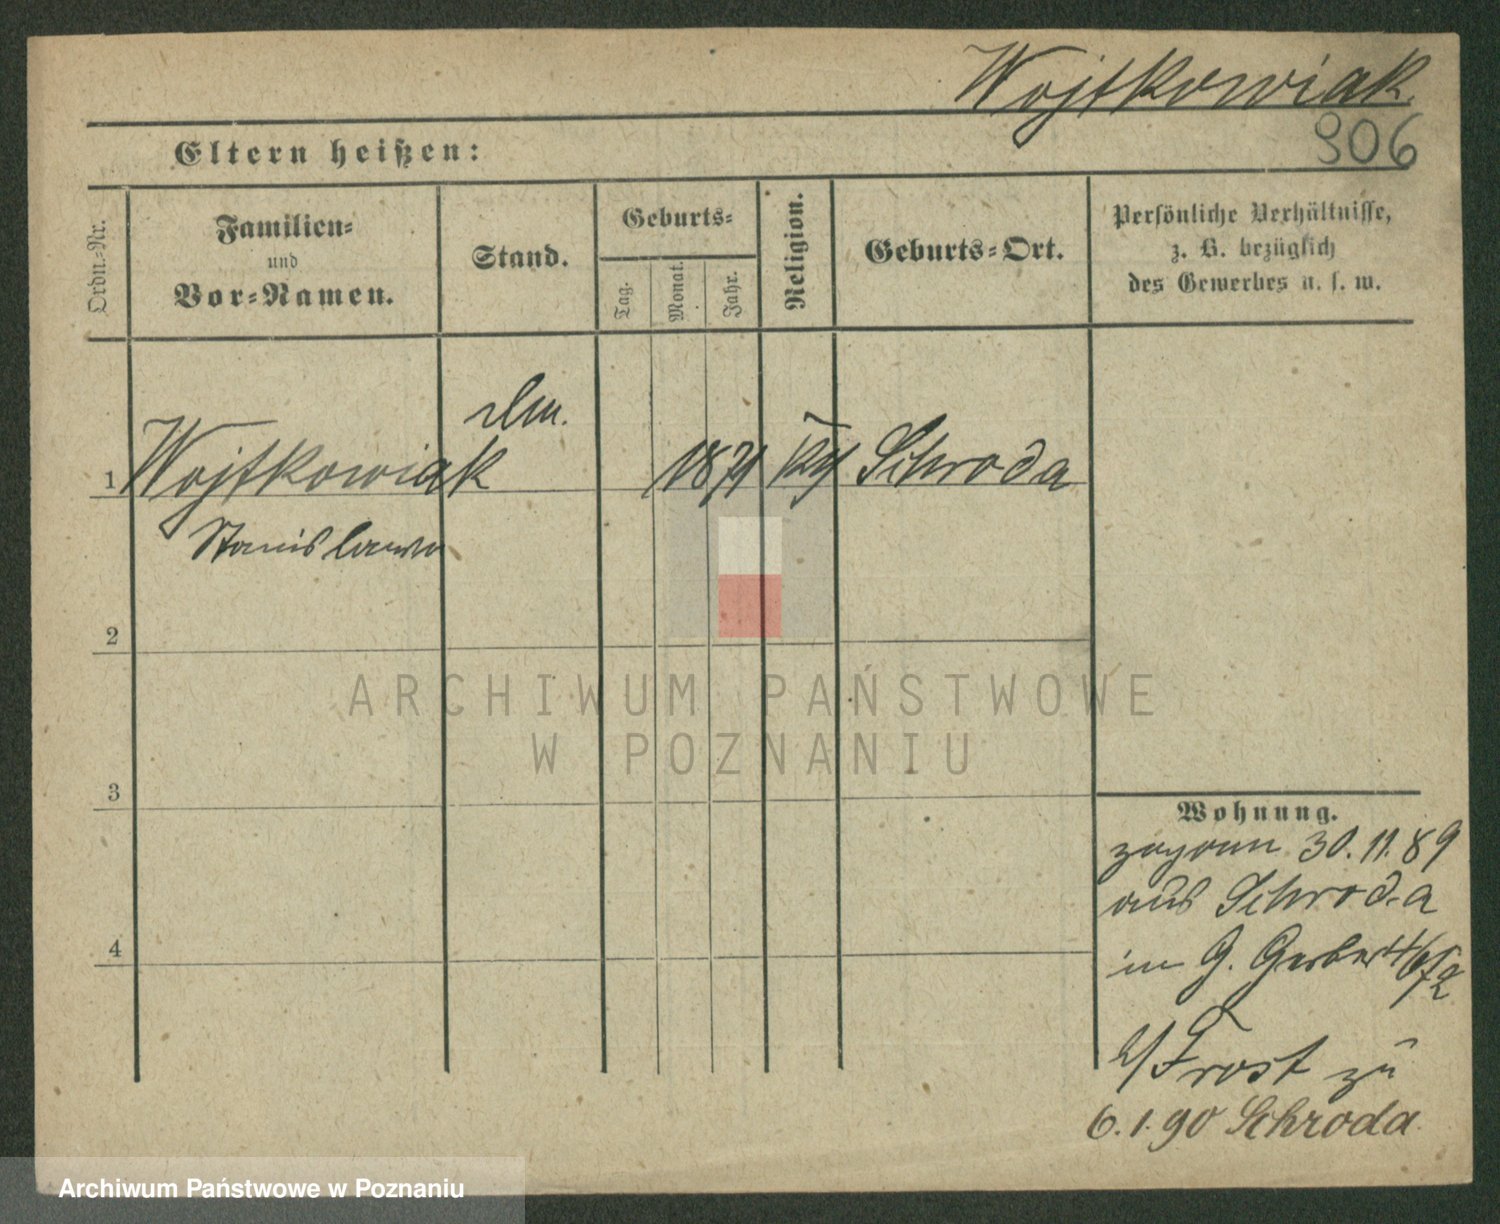 Wojtkowiak
906
Eltern heißen:
Ordn.-Nr.
Familien-
und
Vor-Namen.
Stand.
Geburts-
Tag.
Monat.
Jahr.
Religion.
Geburts-Ort.
Persönliche Verhältnisse,
z. B. bezüglich
des Gewerbes u. s. w.
1 Wojtkowiak 1871 Schroda
Stanislawa
2
3
4
Wohnung.
zugezogen 30. 11. 89
aus Schroda
in G. Gerber
b/ Frost zu
6. 1. 90 Schroda
ARCHIWUM PAŃSTWOWE
W POZNANIU
Archiwum Państwowe w Poznaniu